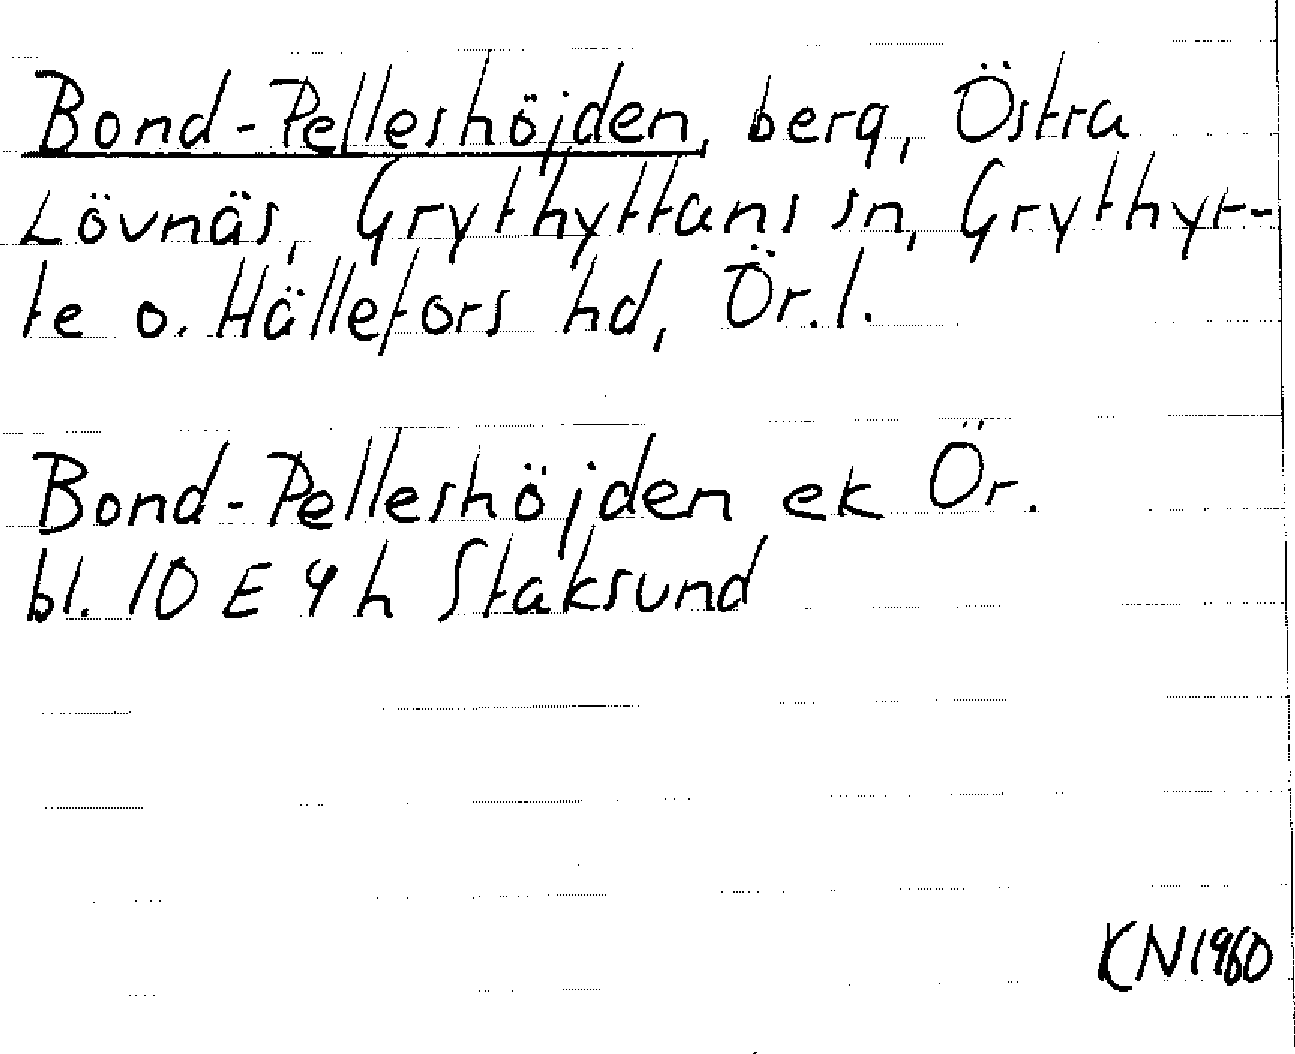 Bond-Pelleshöjden, berg, Östra
Lövnäs, Grythyttans sn, Grythyt-
te o. Hällefors hd, Ör.l.
Bond-Pelleshöjden ek Ör.
bl. 10 E 9 h Staksund
KN 1960